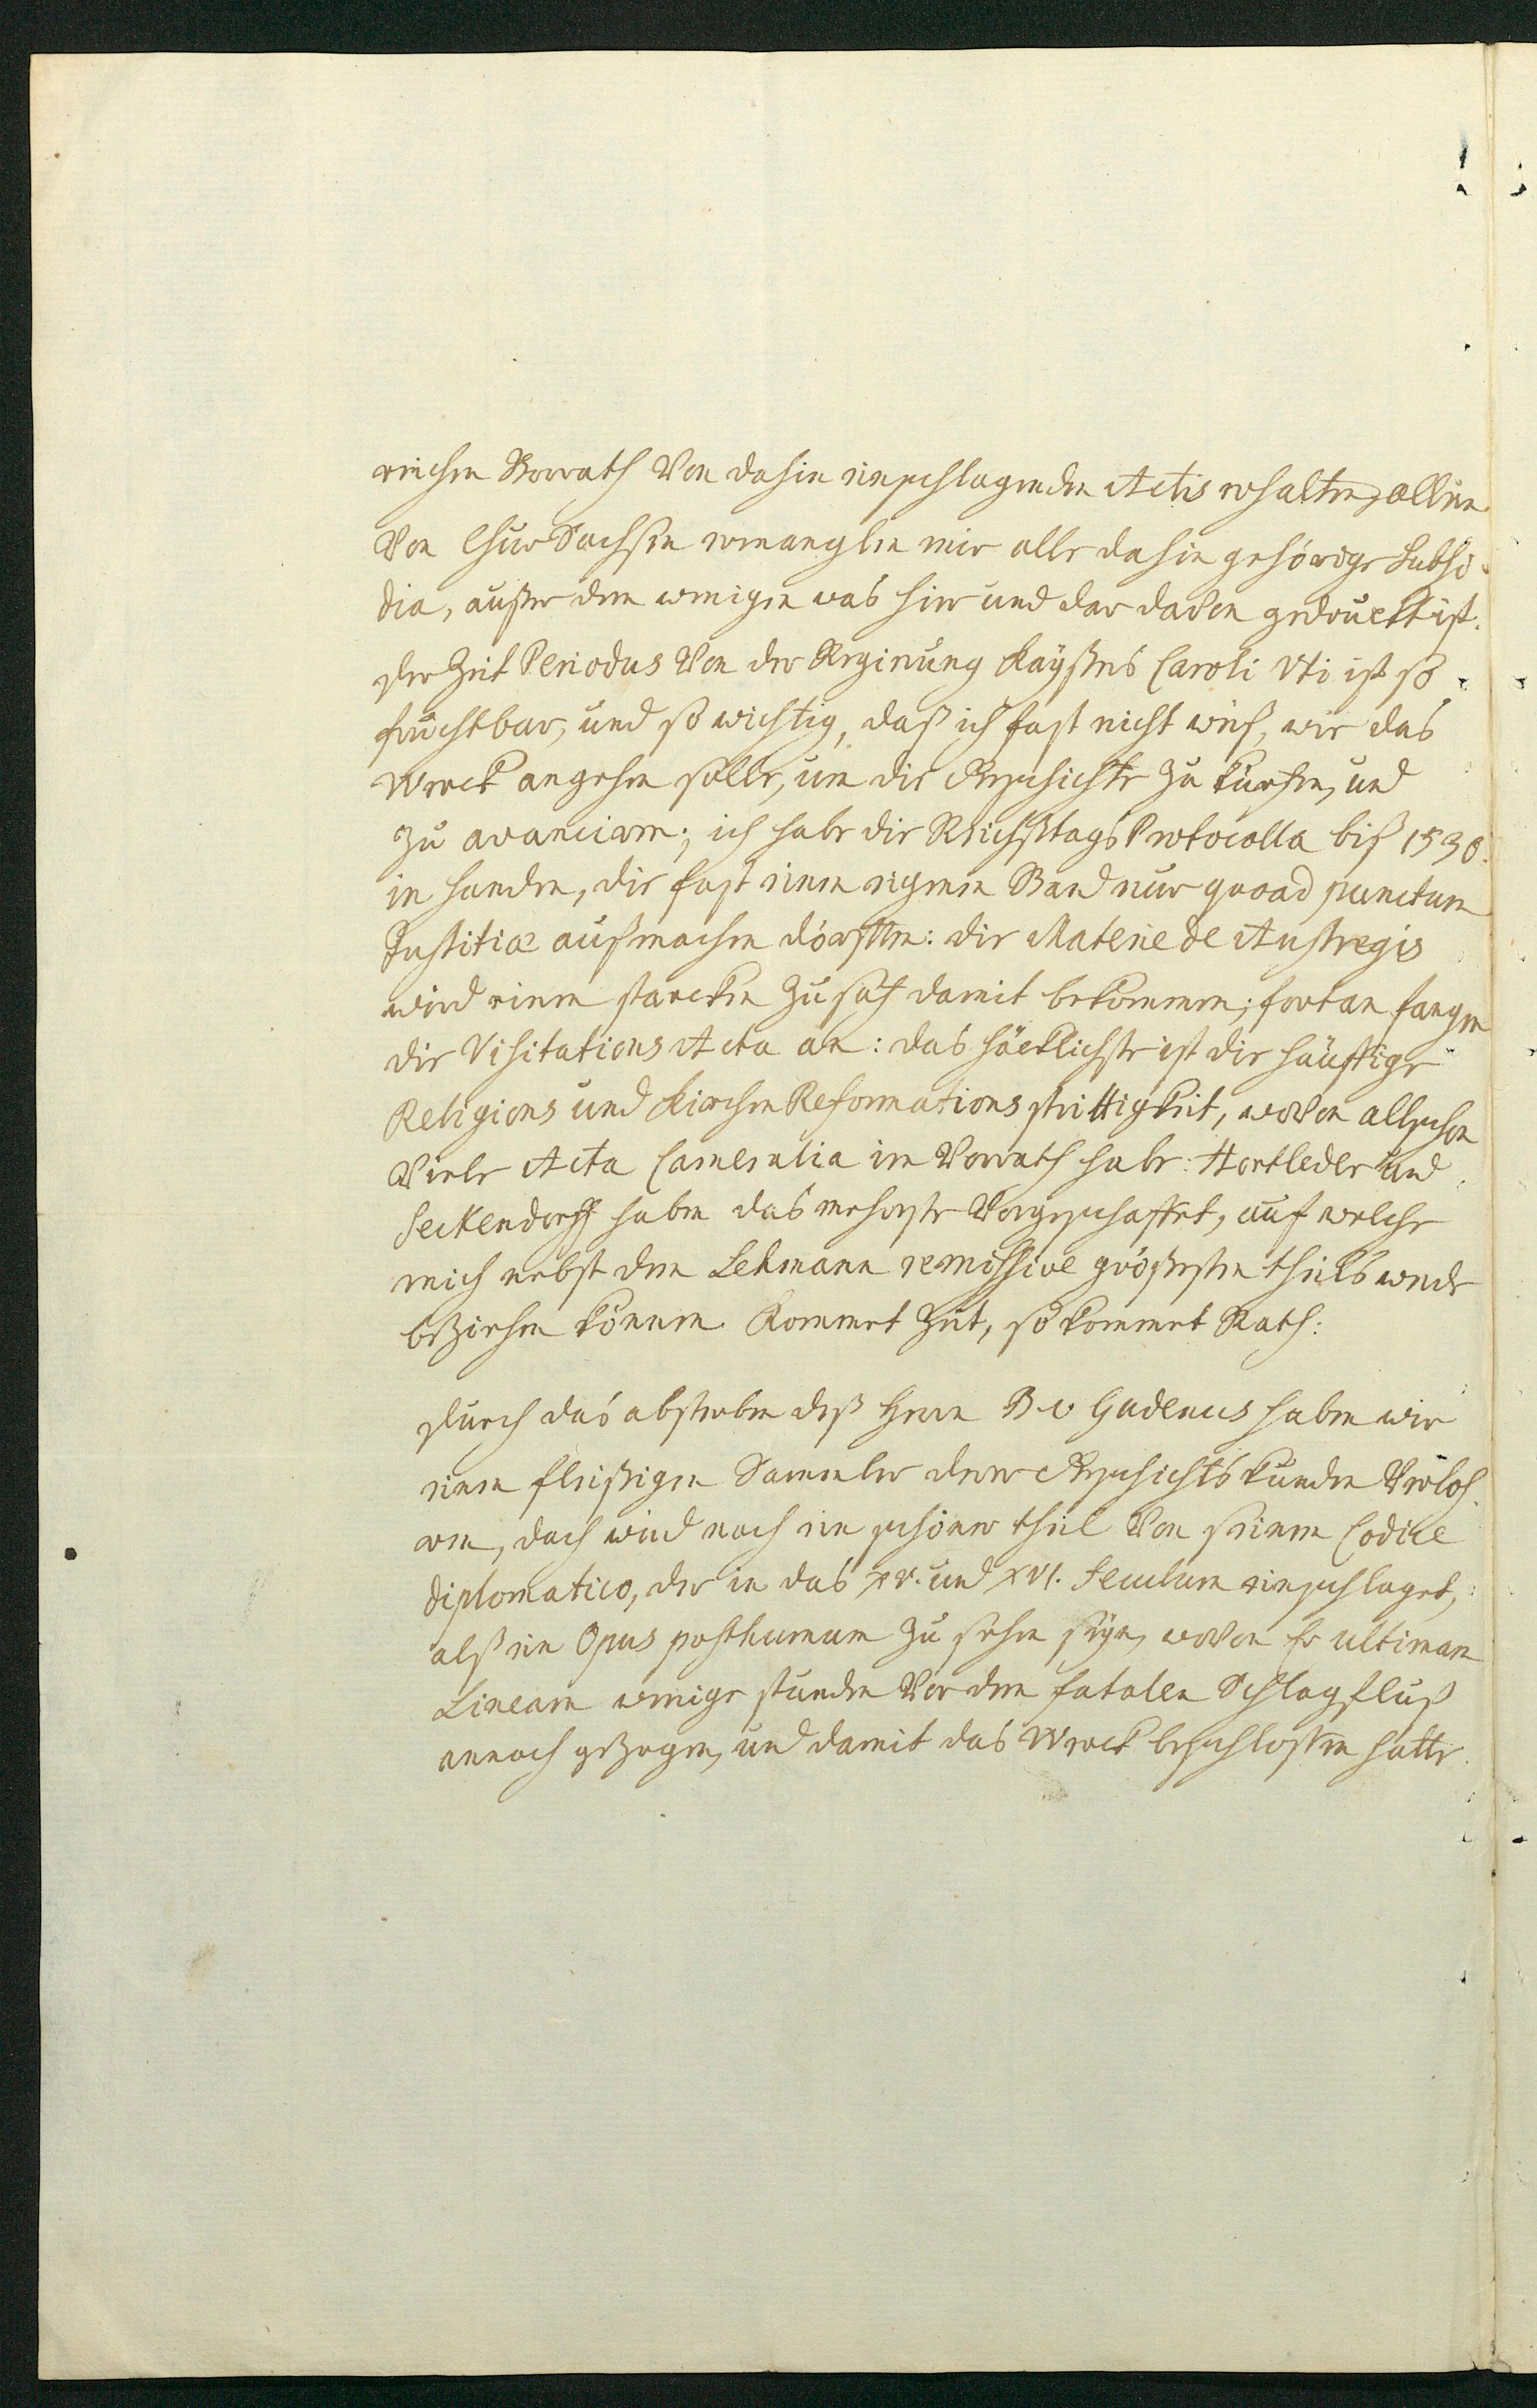 reichen Vorrath von dahin einschlagenden Actis erhalten, allein
von Chur Sachsen ermanglen mir alle dahin gehörige Subsi-
dia, außer dem wenigen was hier und dar davon gedruckt ist.
der Zeit Periodus von der Regierung Kaÿsers Caroli Vti ist so
fruchtbar, und so wichtig, daß ich fast nicht weiß, wie das
Werck angehen solle, um die Geschichte zu kürtzen, und
zu avanciren; ich habe die Reichstags Protocolla biß 1530.
in handen, die fast einen eigenen Band nur quoad punctum
Justitiæ außmachen dörfften: die Materie de Austregis
wird einen starcken Zusatz damit bekommen; fortan fangen
die Visitations Acta an: das häcklichste ist die häuffige
Religions und Kirchen Reformations strittigkeit, wovon allschon
viele Acta Cameralia im Vorrath habe: Hortleder und
Seckendorff haben das mehreste vorgeschafftet, auf welche
mich nebst dem Lehmann remissive größesten theils werde
beziehen können. Kommet Zeit, so kommet Rath:
durch das absterben deß Herrn B. v. Gudenus haben wir
einen fleißigen Sammler derer Geschichts kunden verloh-
ren, doch wird noch ein schöner theil von seinem Codice
diplomatico, der in das XV. und XVI. Seculum einschlaget,
alß ein Opus posthumum zu sehen seÿn, wovon Er ultimam
Lineam wenige stunden vor dem fatalen Schlagfluß
annoch gezogen, und damit das Werck beschlossen hatte.